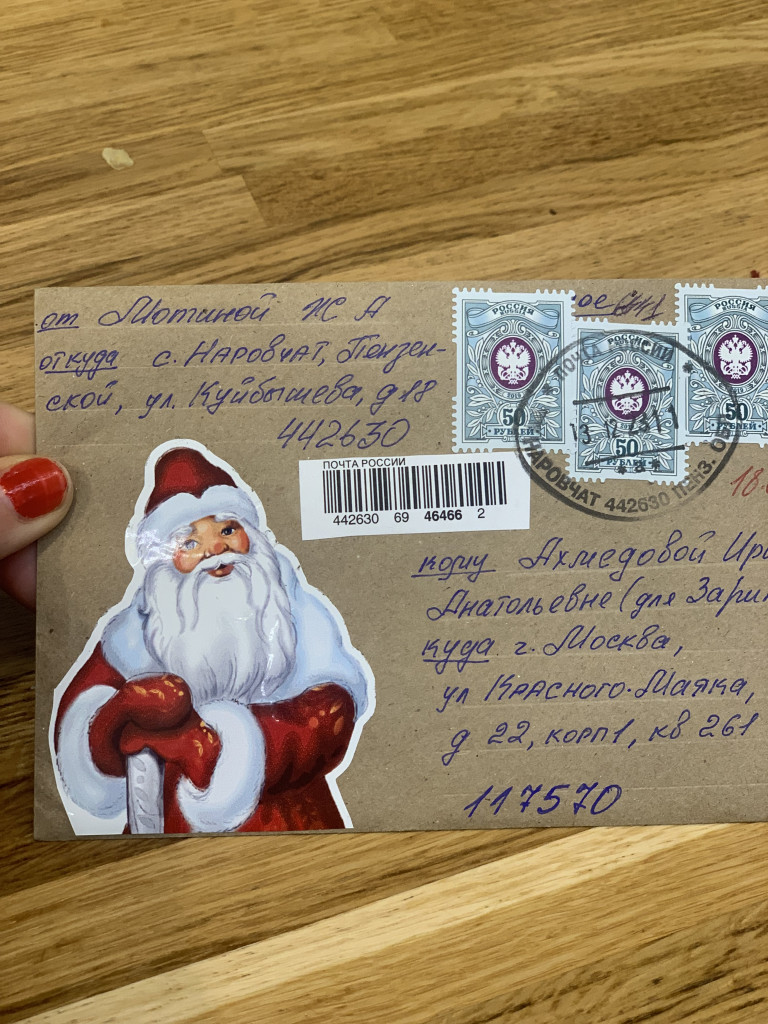 от Мотиной Ж А
откуда с. Наровчат, Пензен-
ской, ул. Куйбышева, д 18
442630
РОССИЯ
50
РУБЛЕЙ
ое
РОССИЯ
50
РУБЛЕЙ
РОССИЯ
50
РУБЛЕЙ
ПОЧТА РОССИИ
НАРОВЧАТ 442630 ПЕНЗ. ОБ
ПОЧТА РОССИИ
442630 69 46466 2
18.
кому Ахмедовой Ири
Анатольевне (для Зарин
куда г. Москва,
ул Красного-Маяка,
д 22, корп1, кв 261
117570